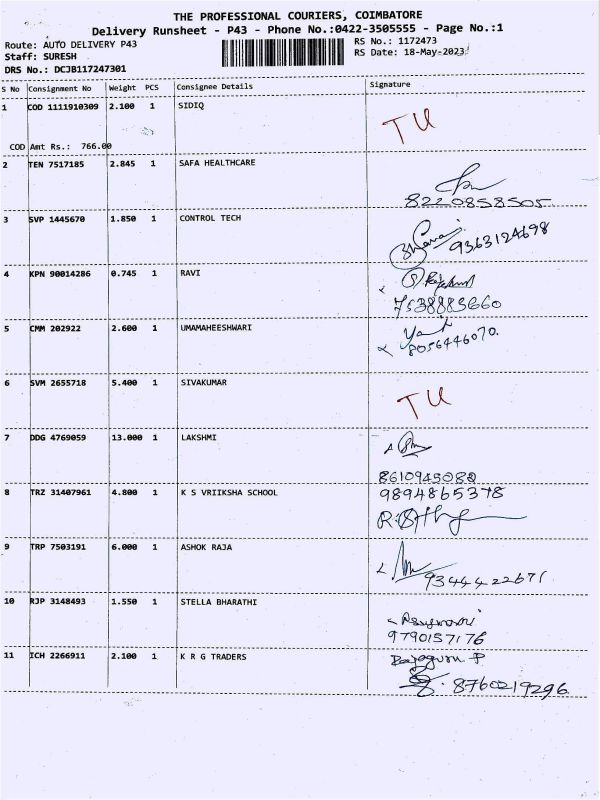 THE PROFESSIONAL COURIERS, COIMBATORE
Delivery Runsheet - P43 - Phone No.:0422-3505555 - Page No.:1
Route: AUTO DELIVERY P43
Staff: SURESH
DRS No.: DCJB117247301
RS No.: 1172473
RS Date: 18-May-2023
S No Consignment No Weight PCS Consignee Details Signature
1 COD 1111910309 2.100 1 SIDIQ TU
COD Amt Rs.: 766.00
2 TEN 7517185 2.845 1 SAFA HEALTHCARE
8220858505
3 SVP 1445670 1.850 1 CONTROL TECH
9363124698
4 KPN 90014286 0.745 1 RAVI
7538883660
5 CMM 202922 2.600 1 UMAMAHEESHWARI
8056446070.
6 SVM 2655718 5.400 1 SIVAKUMAR TU
7 DDG 4769059 13.000 1 LAKSHMI
8610945080
8 TRZ 31407961 4.800 1 K S VRIIKSHA SCHOOL 9894865378
9 TRP 7503191 6.000 1 ASHOK RAJA
9344422671
10 RJP 3148493 1.550 1 STELLA BHARATHI
9790157176
11 ICH 2266911 2.100 1 K R G TRADERS
8760219296